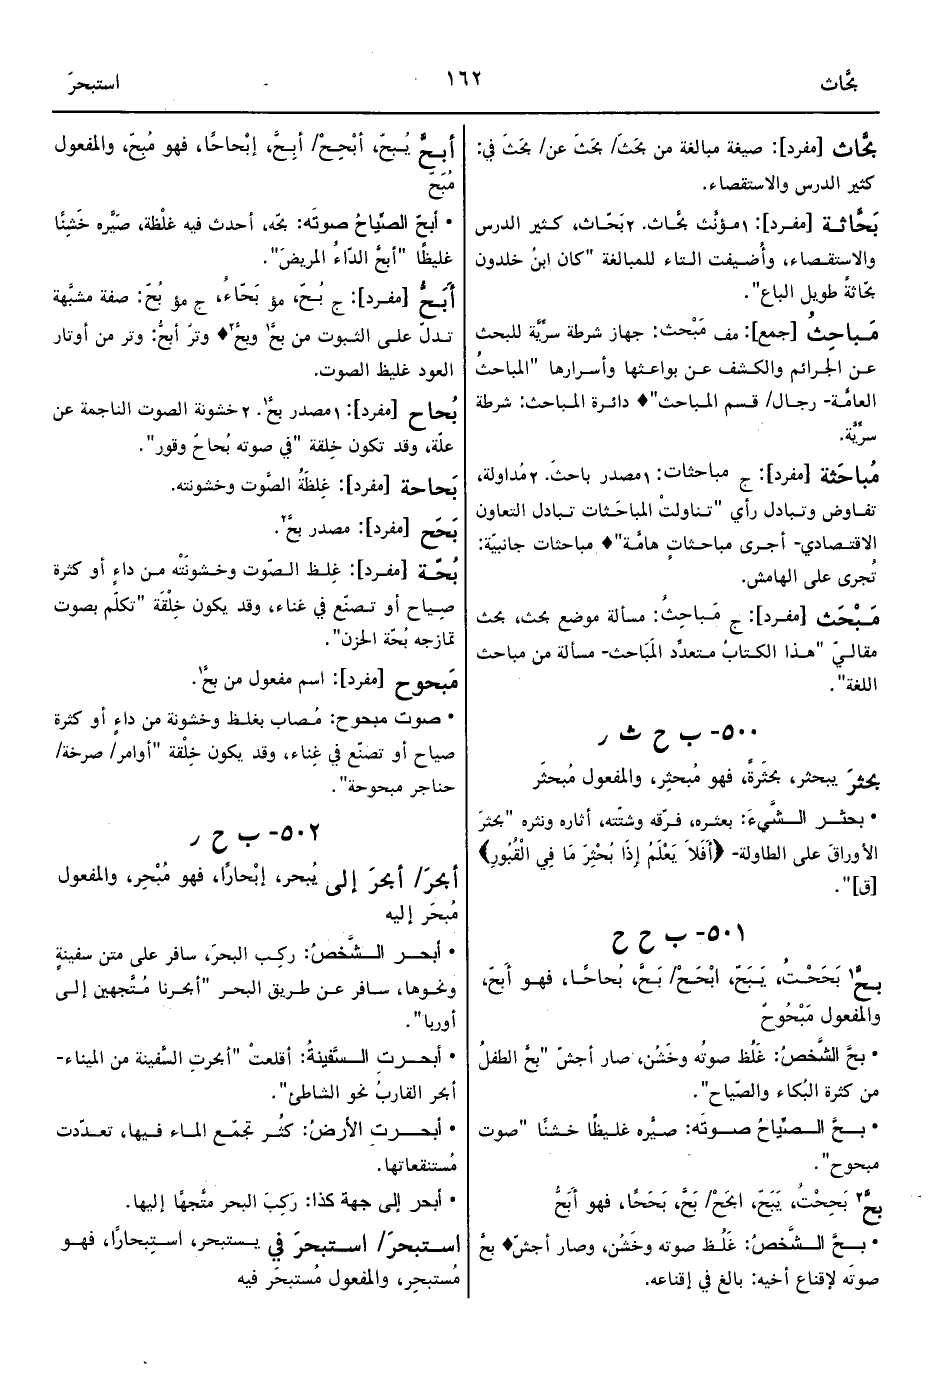 بحَّاث
١٦٢
استبحرَ
بحَّاث [مفرد]: صيغة مبالغة من بحَثَ/ بحَثَ عن/ بحَثَ في:
كثير الدرس والاستقصاء.
بَحَّاثة [مفرد]: ١مؤنَّث بحَّاث. ٢بَحّاث، كثير الدرس
والاستقصاء، وأُضيفت التاء للمبالغة "كان ابنُ خلدون
بحّاثةً طويل الباع".
مَباحِثُ [جمع]: مف مَبْحث: جهاز شرطة سرِّيَّة للبحث
عن الجرائم والكشف عن بواعثها وأسرارها "المباحثُ
العامَّة- رجال/ قسم المباحث"♦ دائرة المباحث: شرطة
سرِّيَّة.
مُباحَثة [مفرد]: ج مباحثات: ١مصدر باحثَ. ٢مُداولة،
تفاوض وتبادل رأي "تناولتْ المباحَثات تبادل التعاون
الاقتصادي- أجرى مباحثاتٍ هامَّة"♦ مباحثات جانبيّة:
تُجرى على الهامش.
مَبْحَث [مفرد]: ج مَباحِثُ: مسألة موضع بحث، بحث
مقاليّ "هذا الكتابُ متعدِّد المَباحث- مسألة من مباحث
اللغة".
٥٠٠- ب ح ث ر
بحثرَ يبحثر، بحثَرَةً، فهو مُبحثِر، والمفعول مُبحثَر
• بحثر الشَّيءَ: بعثره، فرّقه وشتّته، أثاره ونثره "بحثرَ
الأوراقَ على الطاولة- ﴿أَفَلاَ يَعْلَمُ إِذَا بُحْثِرَ مَا فِي الْقُبُورِ﴾
[ق]".
٥٠١- ب ح ح
بحَّ١ بَحَحْتُ، يَبَحّ، ابْحَحْ/ بَحَّ، بُحاحًا، فهو أَبَحّ،
والمفعول مَبْحُوحٌ
• بحَّ الشَّخصُ: غَلُظ صوتُه وخَشُن، صار أجشّ "بحَّ الطفلُ
من كثرة البُكاء والصّياح".
• بحَّ الصيِّاحُ صوتَه: صيَّره غليظًا خشنًا "صوت
مبحوح".
بحَّ٢ بَحِحْتُ، يَبَحّ، ابحَحْ/ بَحَّ، بَحَحًا، فهو أَبَحُّ
• بحَّ الشَّخصُ: غَلُظ صوته وخَشُن، وصار أجشّ♦ بحَّ
صوتَه لإقناع أخيه: بالغ في إقناعه.
أبحَّ يُبحّ، أبْحِحْ/ أبِحَّ، إبْحاحًا، فهو مُبِحّ، والمفعول
مُبَحّ
• أبحّ الصيَّاحُ صوتَه: بحّه، أحدث فيه غلْظة، صَيَّره خَشِنًا
غليظًا "أبحَّ الدّاءُ المريضَ".
أَبَحُّ [مفرد]: ج بُحّ، مؤ بَحّاءُ، ج مؤ بُحّ: صفة مشبَّهة
تدلّ على الثبوت من بحَّ١ وبحَّ٢♦ وترٌ أبحُّ: وتر من أوتار
العود غليظ الصوت.
بُحاح [مفرد]: ١مصدر بحَّ١. ٢خشونة الصوت الناجمة عن
علّة، وقد تكون خِلقة "في صوته بُحاحٌ وقور".
بَحاحة [مفرد]: غِلظَةُ الصَّوت وخشونته.
بَحَح [مفرد]: مصدر بحَّ٢.
بُحَّة [مفرد]: غِلظ الصّوت وخشونَتُه من داءٍ أو كثرة
صِياح أو تصنّع في غناء، وقد يكون خِلْقَة "تكلّم بصوت
تمازجه بُحّة الحزن".
مَبحوح [مفرد]: اسم مفعول من بحَّ١.
• صوت مبحوح: مُصاب بغلظ وخشونة من داءٍ أو كثرة
صياح أو تصنّع في غناء، وقد يكون خِلْقة "أوامر/ صرخة/
حناجر مبحوحة".
٥٠٢- ب ح ر
أبحَرَ/ أبحَرَ إلى يُبحر، إبْحارًا، فهو مُبْحِر، والمفعول
مُبحَر إليه
• أبحر الشَّخصُ: ركِب البحرَ، سافر على متن سفينةٍ
ونحوها، سافر عن طريق البحر "أبحرنا مُتَّجهين إلى
أوربا".
• أبحرت السَّفينةُ: أقلعتْ "أبحرتِ السَّفينة من الميناء-
أبحر القاربُ نحو الشاطئ".
• أبحرت الأرضُ: كثُر تجمّع الماء فيها، تعدّدت
مُستنقعاتها.
• أبحر إلى جهة كذا: رَكِبَ البحر متَّجهًا إليها.
استبحرَ/ استبحرَ في يستبحر، استِبحارًا، فهو
مُستبحِر، والمفعول مُستبحَر فيه